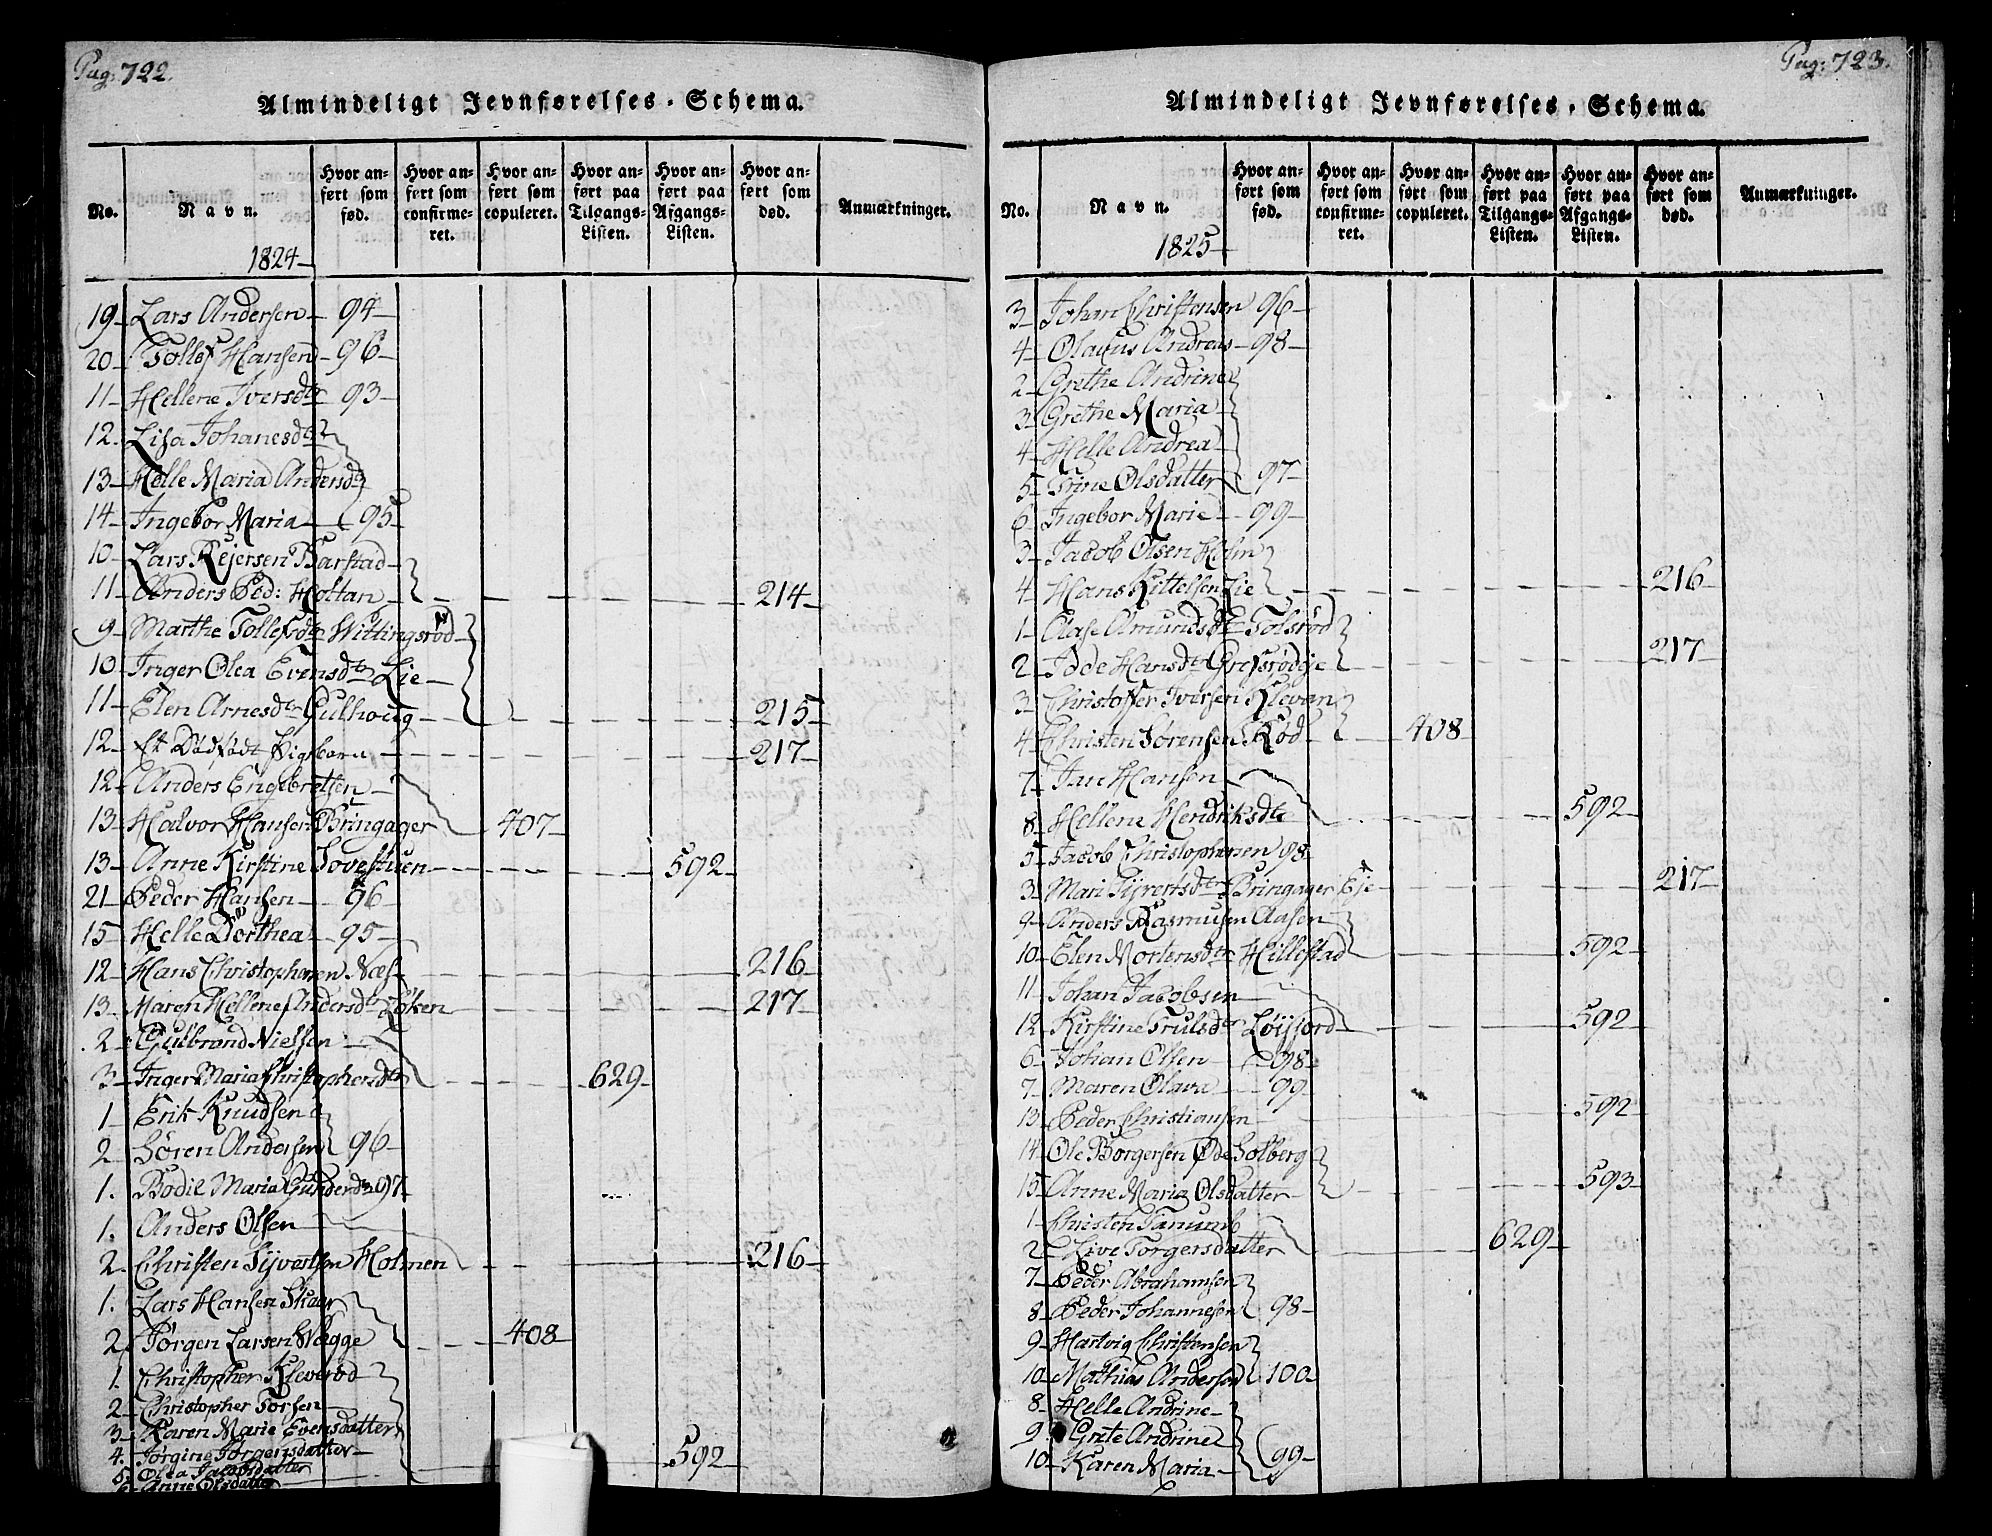 Pag: 722.
Almindeligt Jevnførelses-Schema.
No.
Navn.
Hvor anført som fød.
Hvor anført som confirmeret.
Hvor anført som copuleret.
Hvor anført paa Tilgangs-Listen.
Hvor anført paa Afgangs-Listen.
Hvor anført som død.
Anmærkninger.
1824
19 Lars Andersen 94
20 Tollef Hansen 96
11 Hellene Iversdtr 93
12. Lisa Johanesdtr
13 Helle Maria Andersdtr
14 Ingebor Maria 95
10 Lars Rejersen Barstad
11 Anders Ped: Hottan 214
9 Marthe Tollefsdtr Wittingsrød
10 Inger Olea Evensdtr Lie
11 Elen Arnesdtr Gulhoug 215
12 Et Dødfødt Pigebarn 217
12 Anders Engebretsen
13 Halvor Hansen Bringager 407
13 Anne Kirstine Sovestuen 592
21 Peder Hansen 96
15 Helle Dorthea 95
12 Hans Christophersen Næss 216
13 Maren Hellene Andersdtr Løken 217
2 Gulbrand Nielsen
3 Inger Maria Christophersdtr 629
1 Erik Knudsen
2 Søren Andersen 96
1. Bodil Maria Gundersdtr 97
1. Anders Olsen
2. Christen Syvertsen Holmen 216
1. Lars Hansen Skaar
2 Jørgen Larsen Wegge 408
1. Christopher Kleverød
2 Christopher Torsen
3 Karen Marie Evensdatter
4. Jørgine Jørgensdatter 592
5. Olea Jacobsdatter
6 Anne Olsdatter
Pag: 723.
Almindeligt Jevnførelses-Schema.
No.
Navn.
Hvor anført som fød.
Hvor anført som confirmeret.
Hvor anført som copuleret.
Hvor anført paa Tilgangs-Listen.
Hvor anført paa Afgangs-Listen.
Hvor anført som død.
Anmærkninger.
1825
3 Johan Christensen 96
4 Olaus Andreas 98
2 Grethe Andrine
3 Grethe Maria
4 Helle Andrea
5 Trine Olsdatter 97
6 Ingebor Marie 99
3 Jacob Olsen Holm
4 Hans Kittelsen Lie 216
1 Aase Amundsdtr Tolsrød
2 Idde Hansdtr 217
3 Christoffer Iversen Klevan
4 Christen Sørensen Rød 408
7 Jan Hansen
8 Hellene Hendriksdtr 592
5 Jacob Christophersen 98
3 Mari Syvertsdtr Bringager Eje 217
9 Anders Rasmusen Aasen
10 Elen Mortensdtr Hillestad 592
11 Johan Jacobsen
12 Kirstine Trulsdtr Løijford 592
6 Johan Olsen 98
7 Maren Olava 99
13 Peder Christiansen 592
14 Ole Borgersen Øde Solberg
15 Anne Maria Olsdatter 593
1 Christen Tanumb
2 Live Torgersdatter 629
7 Peder Abrahamsen
8 Peder Johannesen 98
9 Hartvig Christensen
10 Mathias Andersen 100
8 Helle Andrine
9 Grete Andrine
10 Karen Maria 99